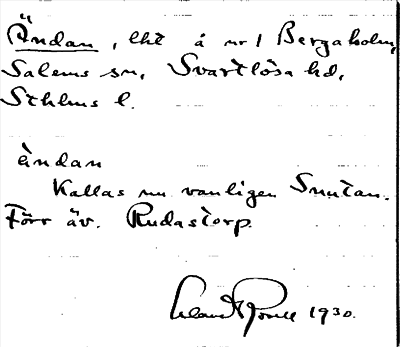 Ändan, lht å nr 1 Bergaholm,
Salems sn, Svartlösa hd,
Sthlms l.
ändan
Kallas nu vanligen Snutan.
Förr äv. Rudastorp.
1930.